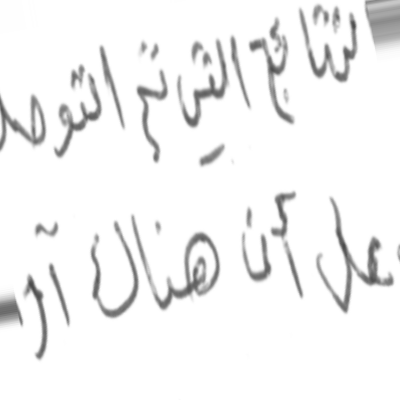 لنتائج التي تم التوصل
على أن هناك آر